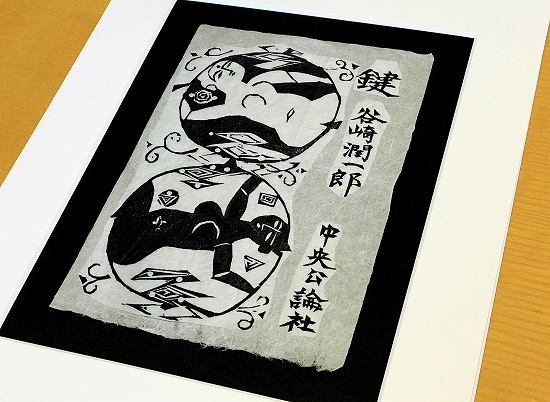 鍵
谷崎潤一郎
中央公論社